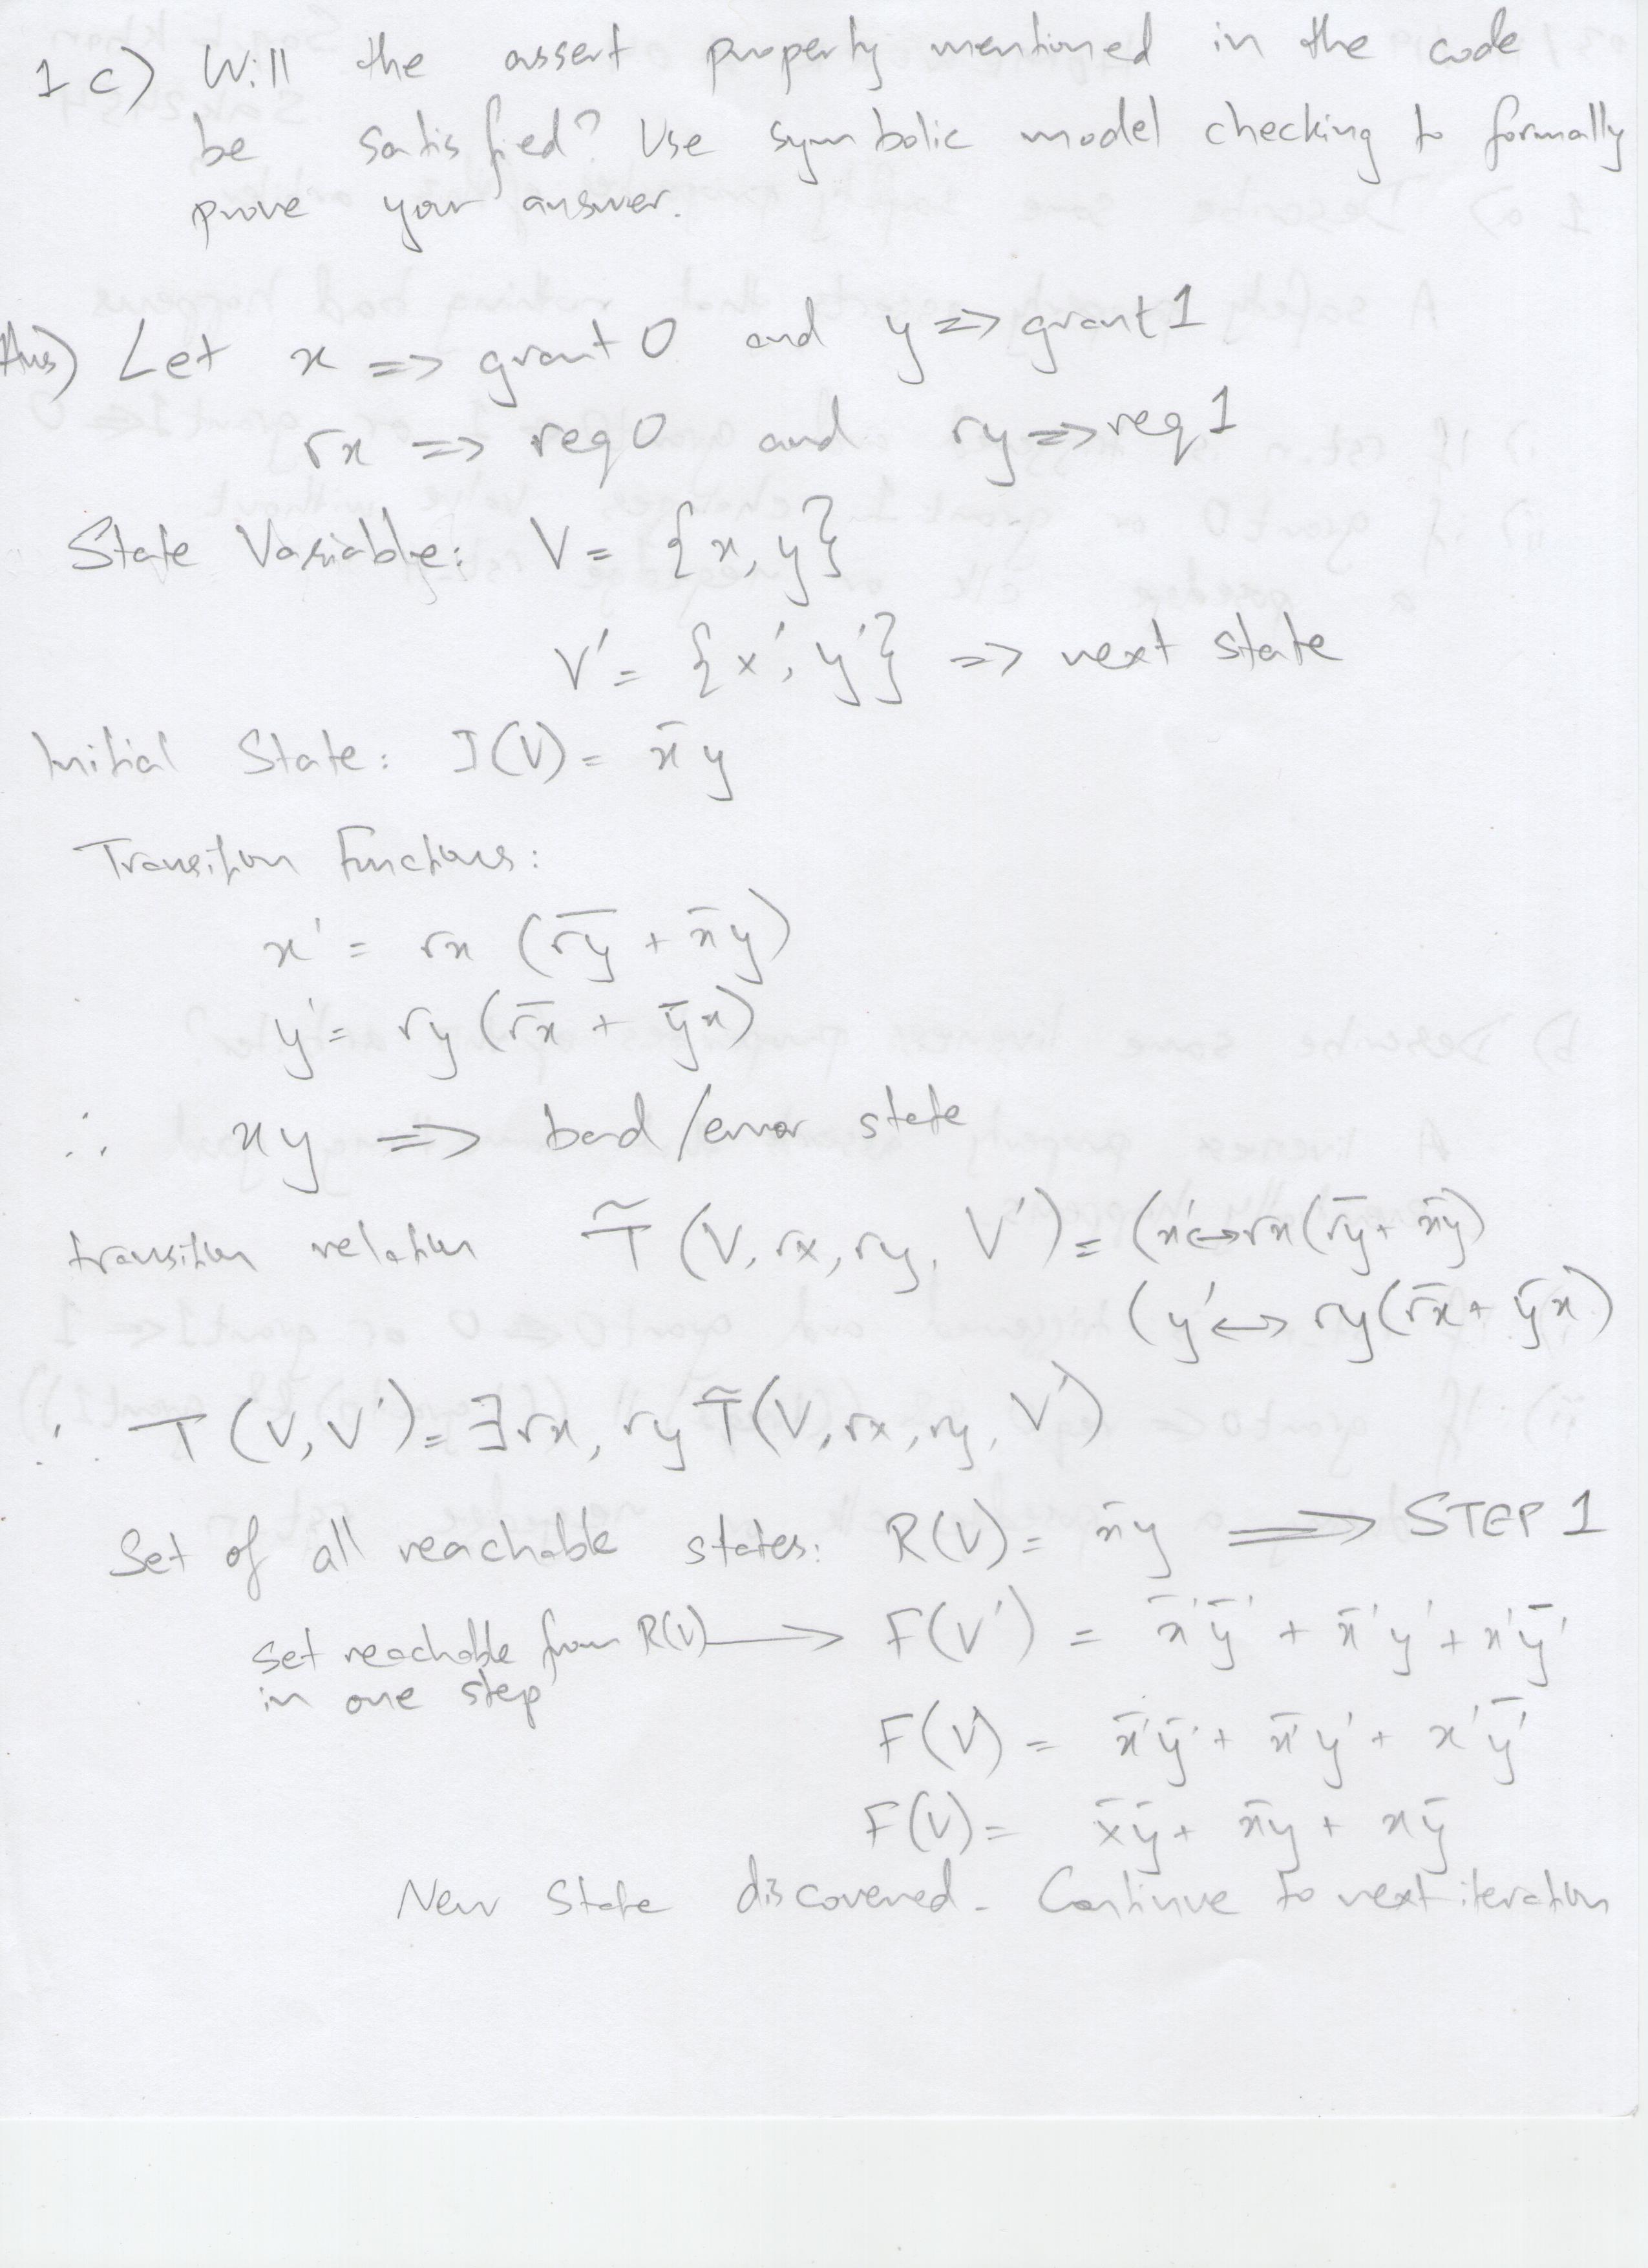 1 c) Will the assert property mentioned in the code
be satisfied? Use symbolic model checking to formally
prove your answer.
Ans) Let x => grant 0 and y => grant 1
rx => req 0 and ry => req 1
State Variable: V = {x, y}
V' = {x', y'} => next state
Initial State: I(V) = x̄ y
Transition Functions:
x' = rx (r̄ȳ + x̄y)
y' = ry (r̄x̄ + ȳx)
∴ xy => bad/error state
transition relation T̃ (V, rx, ry, V') = (x' ↔ rx (r̄ȳ + x̄y)
(y' ↔ ry (r̄x̄ + ȳx)
∴ T (V, V') = ∃ rx, ry T̃ (V, rx, ry, V')
Set of all reachable states: R(V) = x̄y => STEP 1
Set reachable from R(V) → F(V') = x̄'ȳ' + x̄'y' + x'ȳ'
in one step
F(V) = x̄'ȳ' + x̄'y' + x'ȳ'
F(V) = x̄ȳ + x̄y + xȳ
New State discovered. Continue to next iteration